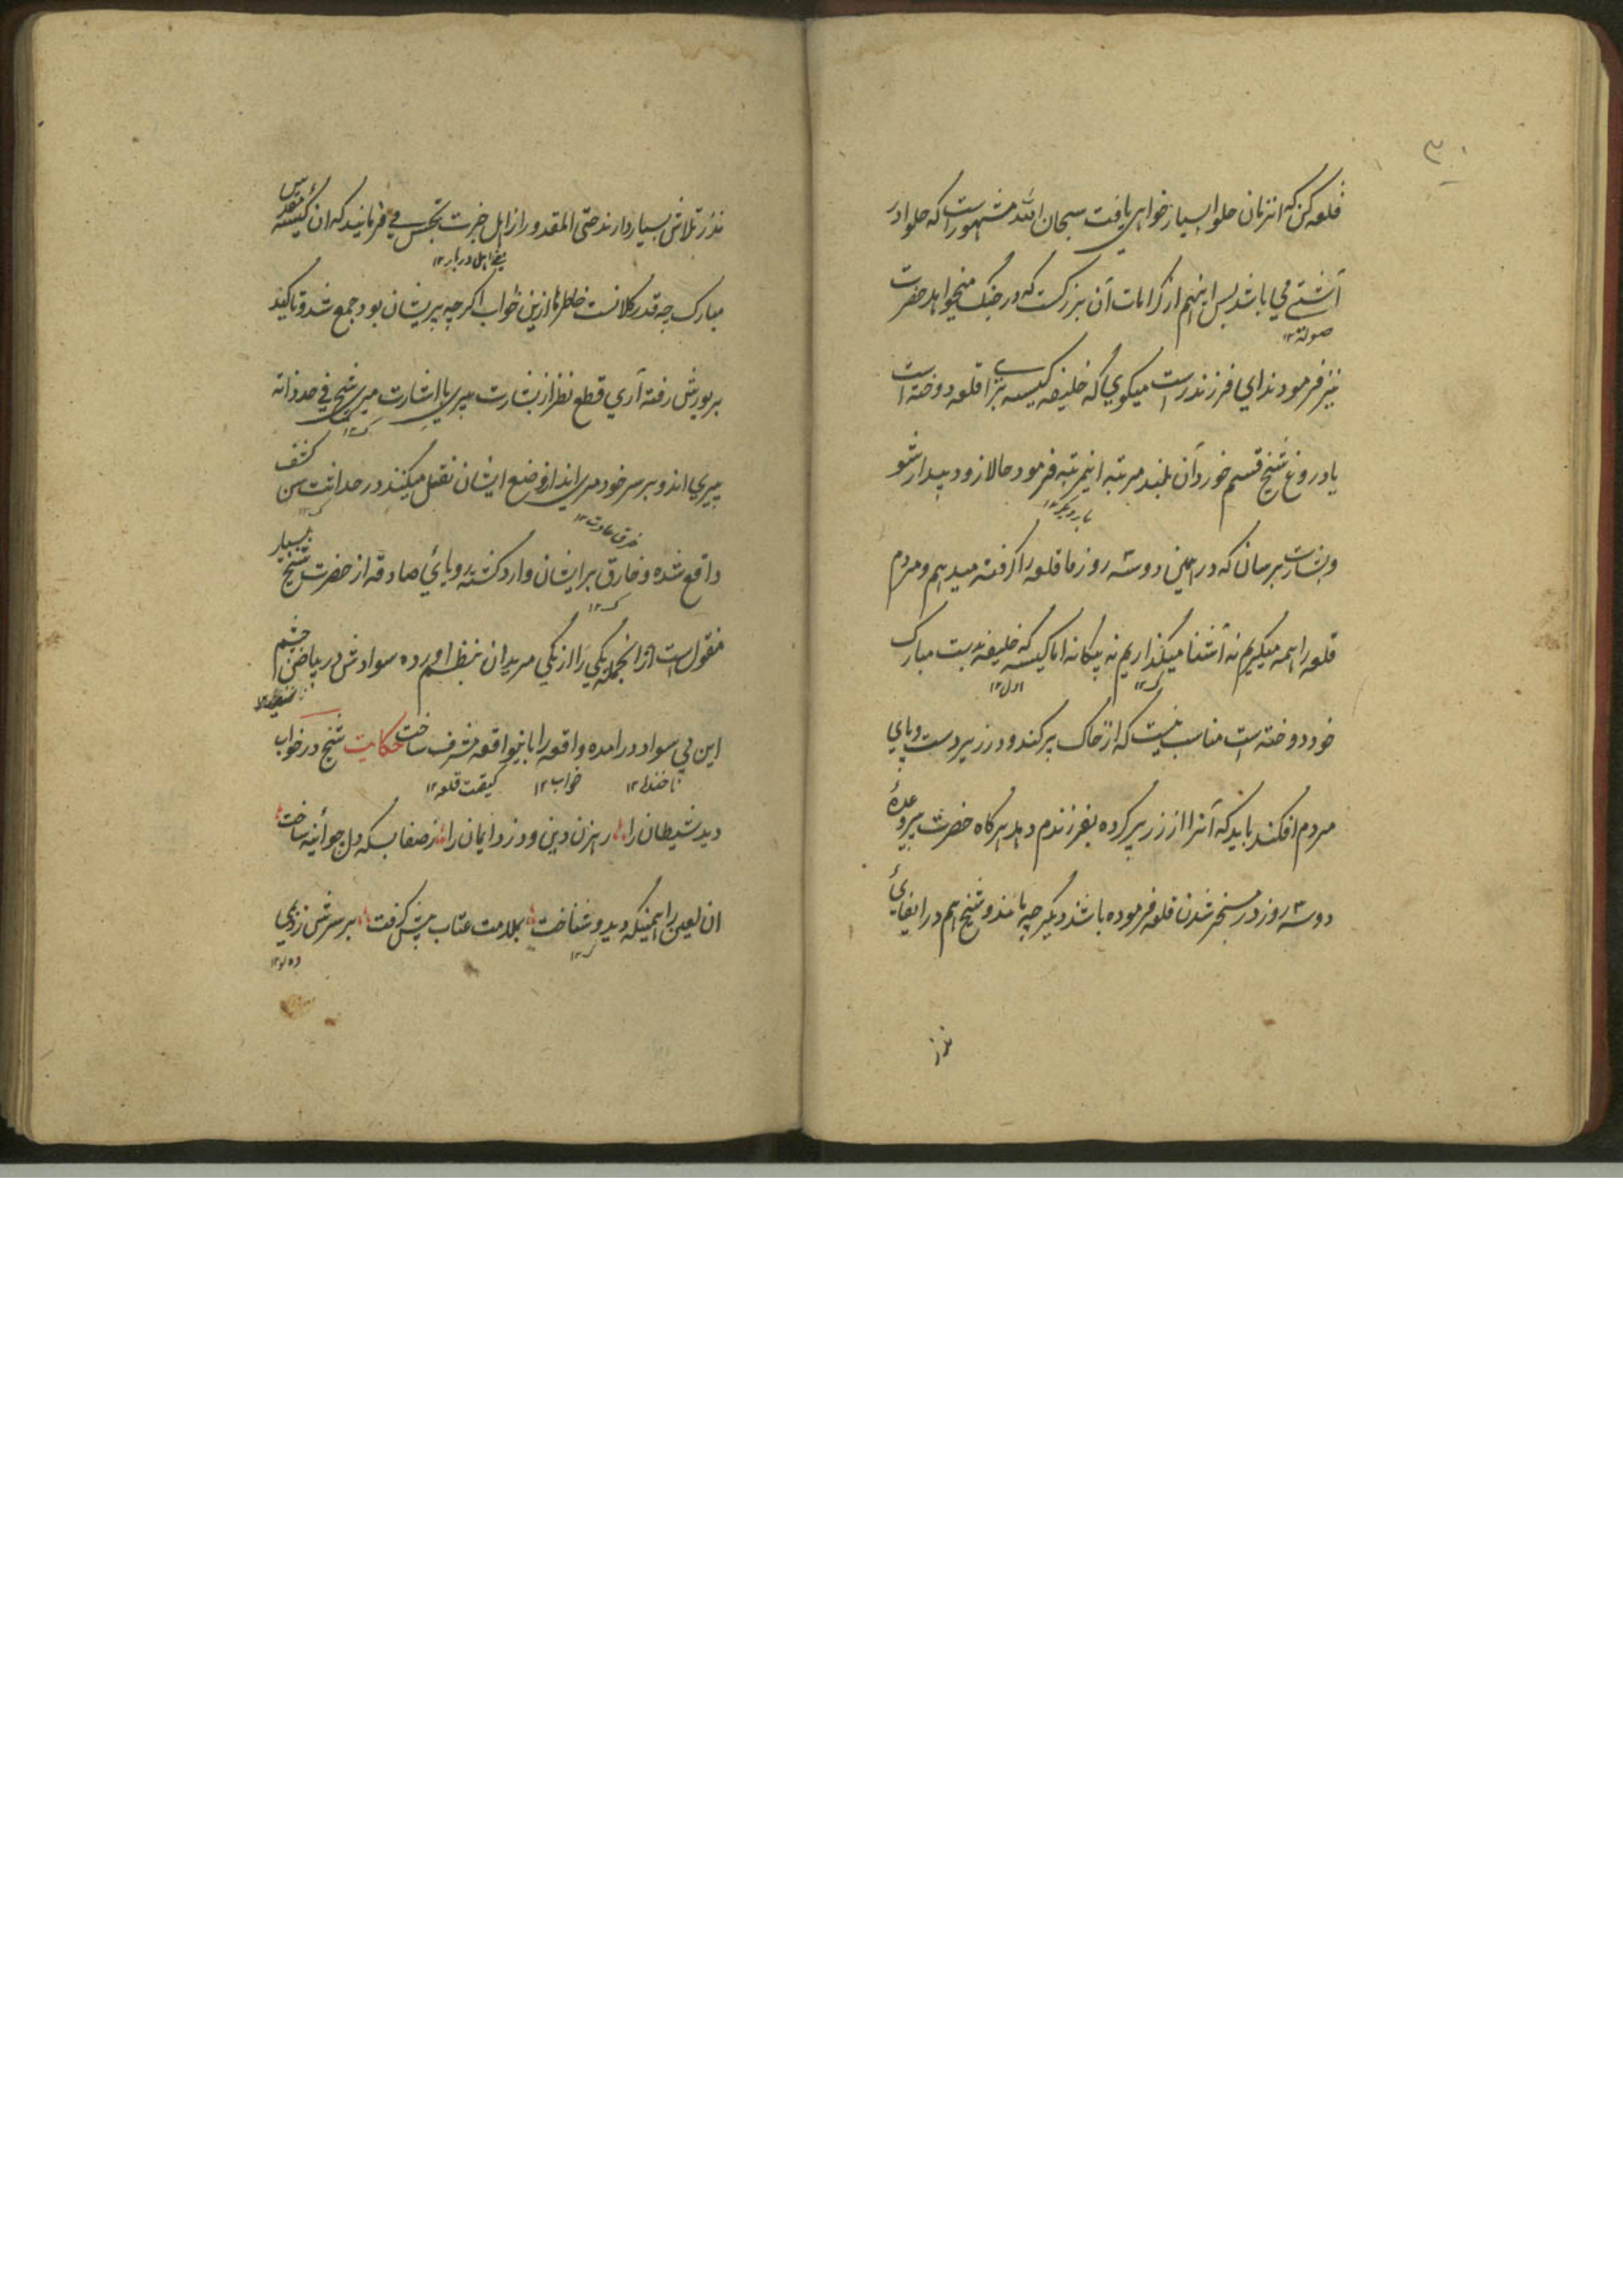 ۳۰
قلعه کن که انزمان حلوا بسیار خواهی یافت سبحان الله مشهور است که حلوا در
آشتی می باشد پس اینهم از کرامات آن بزرگست که در جنگ میخواهد حضرت
صوله ۱۲
نیز فرمودند ای فرزند راست میگوی که خلیفه کیسه بزا قلعه دوخته است
یا دروغ شیخ قسم خورد آن بلند مرتبه اینمرتبه فرمود حالا زود بیدار شو
بار دیگر ۱۲
و بشارت برسان که در همین دو سه روز ما قلعه را گرفته میدهیم و مردم
قلعه را همه میگیریم نه آشنا میگذاریم نه بیگانه اما کیسه که خلیفه بدست مبارک
اول ۱۲
خود دوخته است مناسب نیست که از خاک پر کند و در زیر دست و پای
مردم افکند باید که آنرا از زر پر کرده بفرزندم دهد هرگاه حضرت پیر وعدهٔ
دو سه روز در مسخر شدن قلعه فرموده باشند دیگر چه ماند و شیخ هم در ایفای
نذر
نذر تلاش بسیار دارند حتی المقدور از اهل خبرت تجسس می فرمایند که ان کیسهٔ مقدس
یعنی اهل دربار ۱۲
مبارک چه قدر کلانست خاطرها ازین خواب اگرچه پریشان بود جمع شد و تاکید
بر یورش رفته آری قطع نظر از بشارت پیری با اشارت میری شیخ فی حد ذاته
پیری اند و بر سر خود میری اند از وضع ایشان نقل میکنند در حداثت سن کشف
خرق عادت ۱۲
واقع شده و خارق بر ایشان وارد گشته رویای صادقه از حضرت شیخ بسیار
منقول است ازانجمله یکی را از یکی مریدان بنظم اورده سوادش در بیاض چشم
سفیدی ۱۲
این بی سواد درامده واقعه را باینواقعه مشرف ساخت حکایت شیخ در خواب
ناخنده ۱۲ خواب ۱۲ کیفیت قلعه ۱۲
دید شیطان را رهزن دین و دزد ایمان را از صفا بسکه دل چو آینه ساخت
ان لعین را همینکه دید و شناخت بملامت عتاب پیش گرفت بر سرش زد یکی